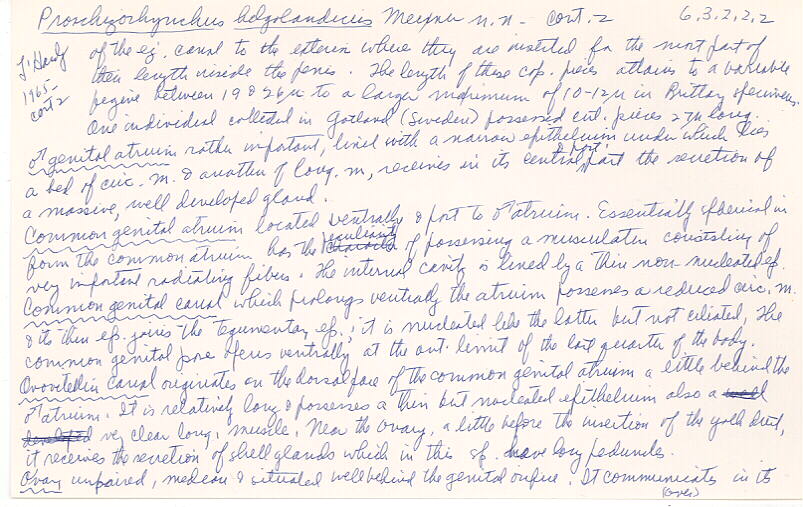 Proschizorhynchus helgolandicus Meixner n.n. - cont. 2 6.3.2.2.2
of the ej. canal to the exterior where they are inserted for the most part of
L'Hardy their length inside the penis. The length of these cop. pieces attains to a variable
1965- cont 2 between 19 & 26 µ to a larger of 10-12 µ in Brittany specimens.
One individual collected in Gotland (Sweden) possessed cut. pieces long.
♂ genital atrium rather important, lined with a narrow epithelium under which lies
a bed of circ. m. & another of long. m, receives in its central & post. part the secretion of
a massive, well developed gland.
Common genital atrium located ventrally & post to ♂ atrium. Essentially spherical in
form the common atrium has the peculiarity of possessing a musculature consisting of
very important radiating fibers. The internal cavity is lined by a thin non-nucleated ep.
Common genital canal which prolongs ventrally the atrium possesses a reduced circ. m.
& its thin ep. joins the tegumentary ep.; it is nucleated like the latter but not ciliated. The
common genital pore opens ventrally at the ant. limit of the last quarter of the body.
Ovovitellin canal originates on the dorsal face of the common genital atrium a little behind the
♂ atrium. It is relatively long & possesses a thin but nucleated epithelium also a
very clear long. muscle. Near the ovary, a little before the insertion of the yolk duct,
it receives the secretion of shell glands which in this sp. have long peduncles.
Ovary unpaired, median & situated well behind the genital orifice. It communicates in its
(over)